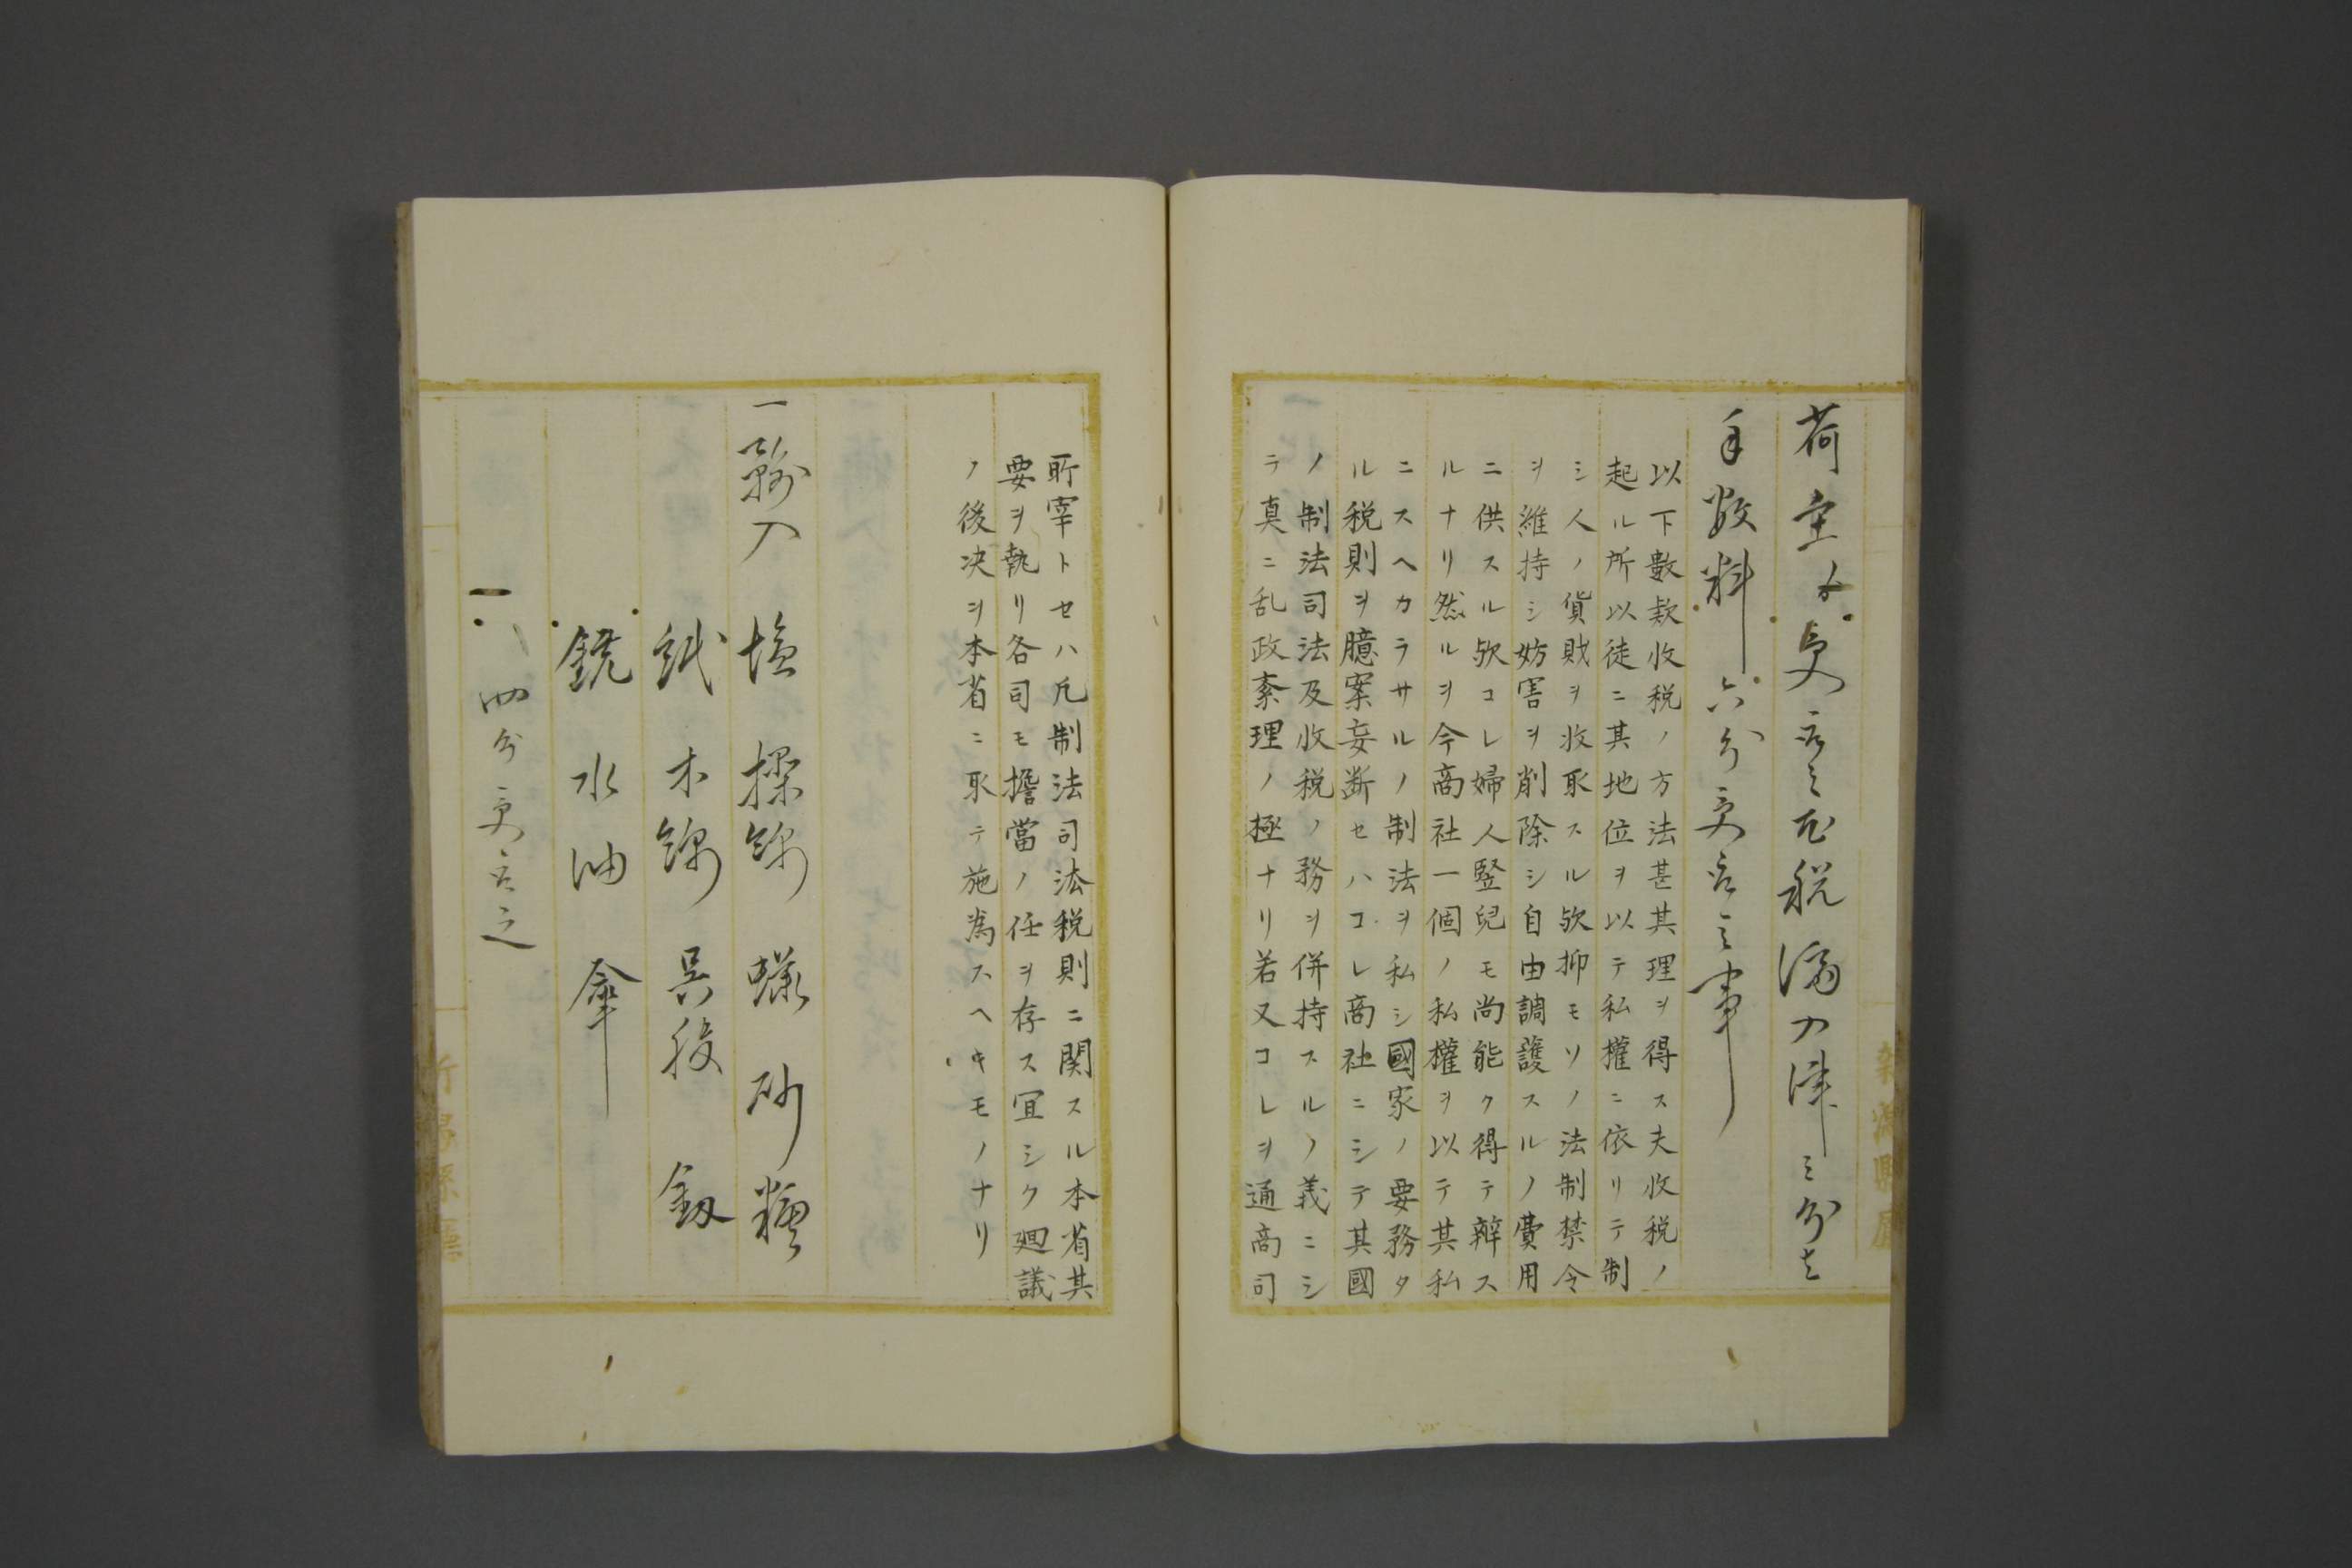 荷主ゟ更ニ尤税満り津三分を
手数料六分受立之事
以下數欵收税ノ方法甚其理ヲ得ス夫收税ノ
起ル所以徒ニ其地位ヲ以テ私權ニ依リテ制
シ人ノ貨財ヲ收取スル欤抑モソノ法制禁令
ヲ維持シ妨害ヲ削除シ自由調護スルノ費用
ニ供スル欤コレ婦人竪兒モ尚能ク得テ辨ス
ルナリ然ルヲ今商社一個ノ私權ヲ以テ其私
ニスヘカラサルノ制法ヲ私シ國家ノ要務タ
ル税則ヲ臆案妄断セハコレ商社ニシテ其國
ノ制法司法及收税ノ務ヲ併持スルノ義ニシ
テ真ニ乱政紊理ノ極ナリ若又コレヲ通商司
所宰トセハ凡制法司法税則ニ関スル本省其
要ヲ執リ各司モ擔當ノ任ヲ存ス宜シク廻議
ノ後决ヲ本省ニ取テ施為スヘキモノナリ
一輸入 塩 操綿 蝋 砂糖
紙 木綿 呉服
鉄 水油 傘
四分
新潟縣廳